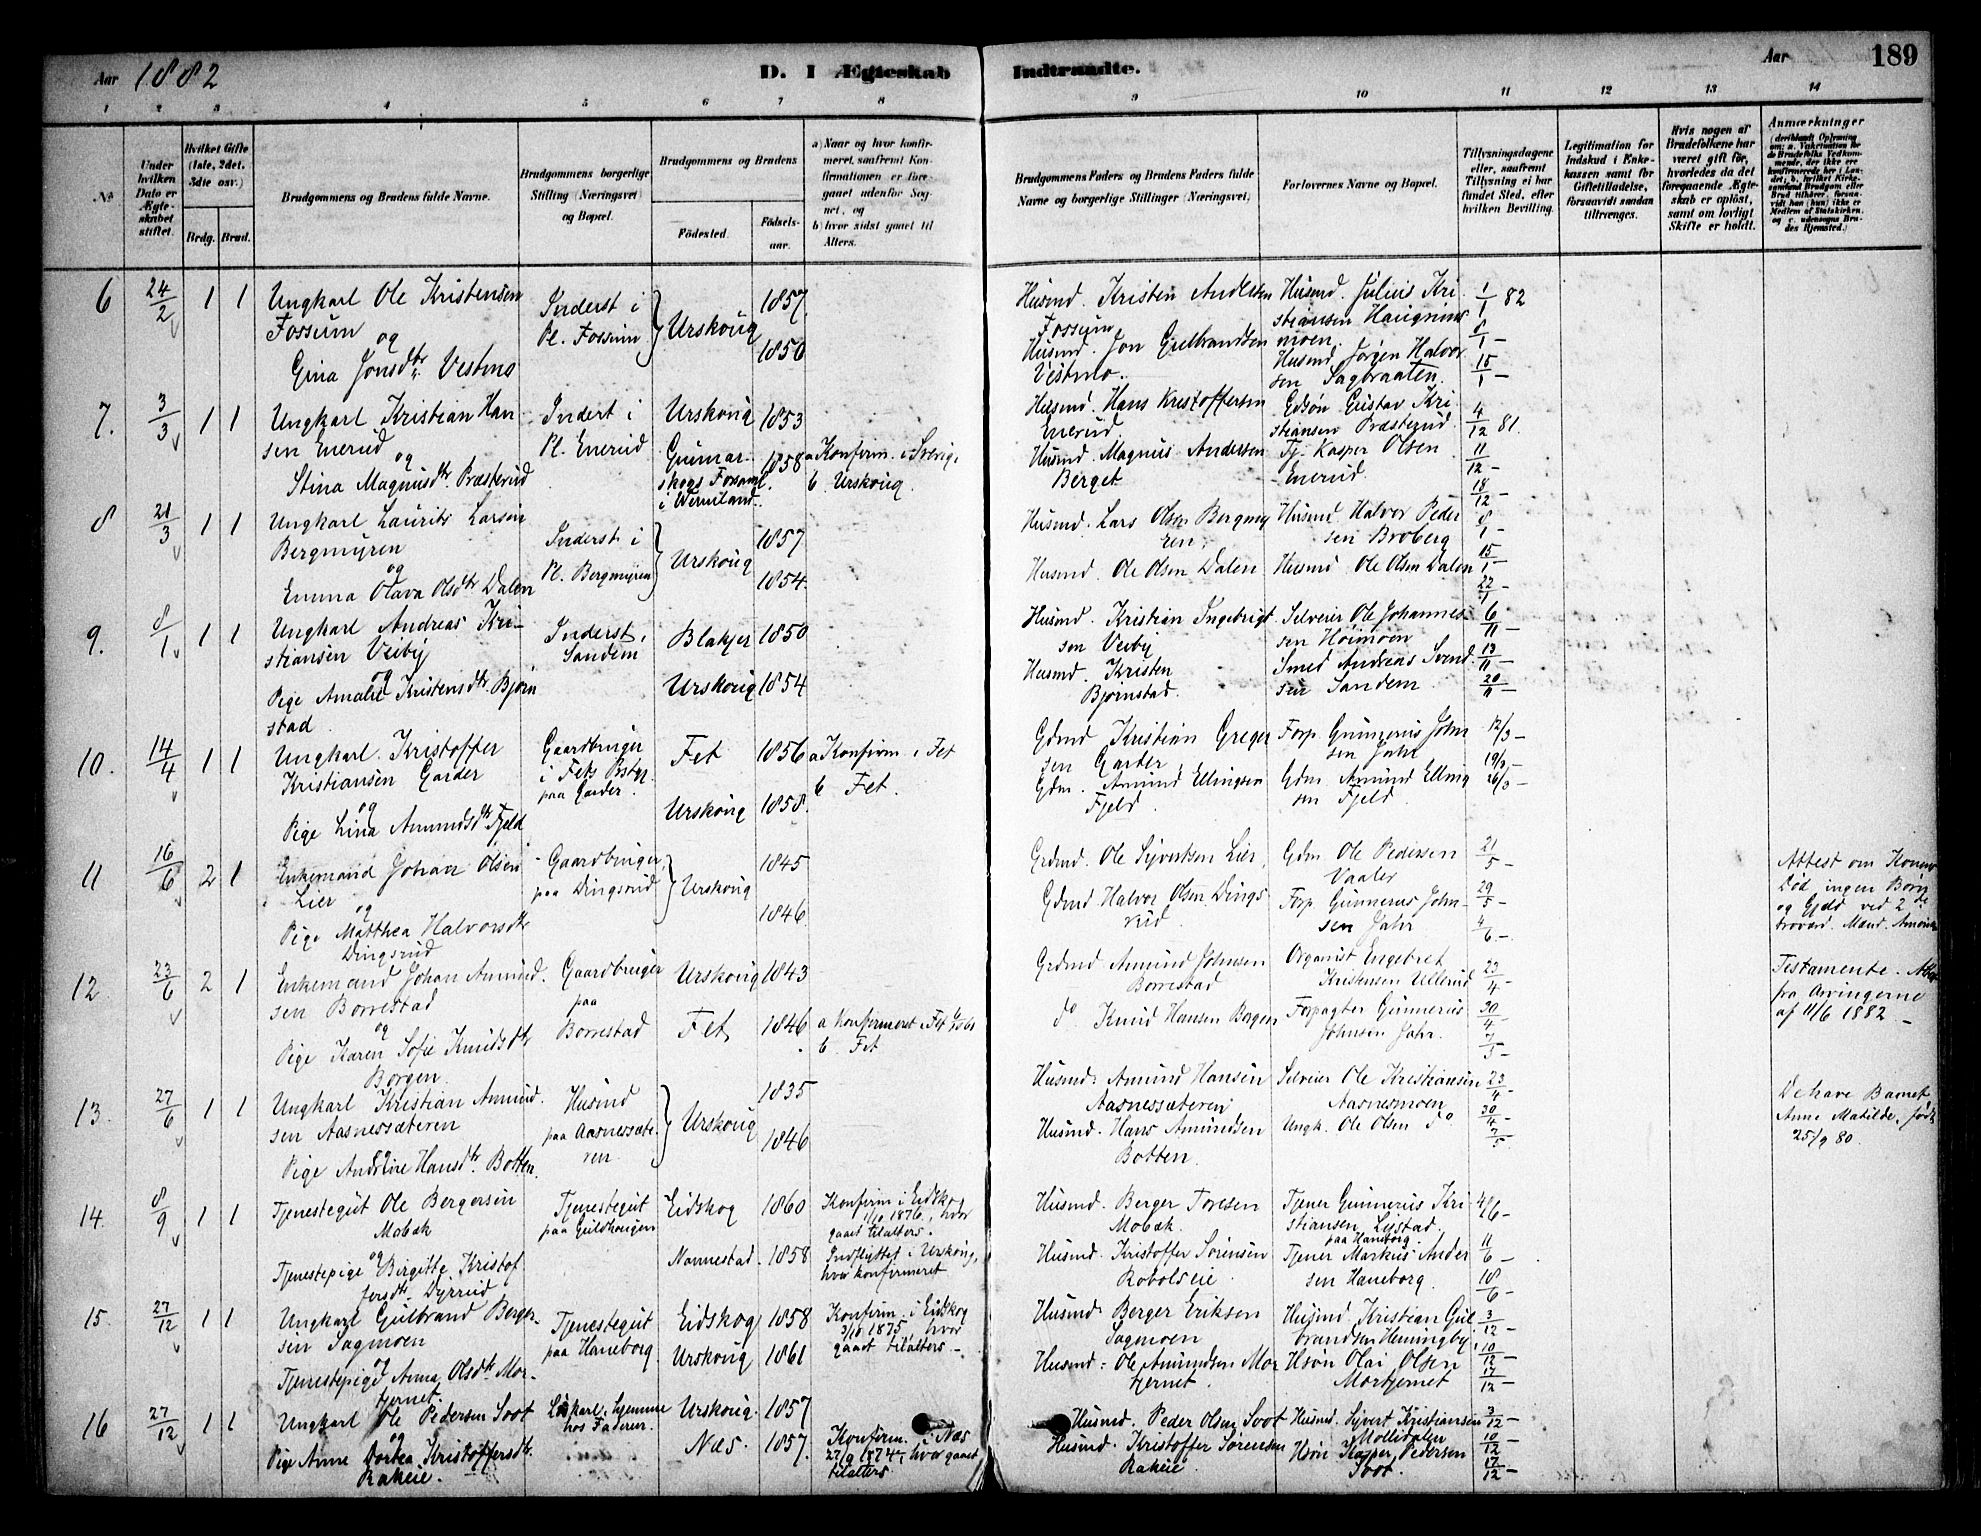 Aar 1882
D. I Ægteskab
Indtraadte.
Aar
189
1 2 3 4 5 6 7 8 9 10 11 12 13 14
No
Under hvilken Dato er Ægteskabet stiftet.
Hvilket Gifte (1ste, 2det, 3die osv.)
Brdg. Brud.
Brudgommens og Brudens fulde Navne.
Brudgommens borgerlige Stilling (Næringsvei) og Bopæl.
Brudgommens og Brudens
Fødested. Fødselsaar.
a) Naar og hvor konfirmeret, saafremt Konfirmationen er foregaaet udenfor Sognet, og
b) hvor sidst gaaet til Alters.
Brudgommens Faders og Brudens Faders fulde Navne og borgerlige Stillinger (Næringsvei)
Forlovernes Navne og Bopæl.
Tillysningsdagene eller, saafremt Tillysning ei har fundet Sted, efter hvilken Bevilling.
Legitimation for Indskud i Enkekassen samt for Giftetilladelse, forsaavidt saadan tiltrænges.
Hvis nogen af Brudefolkene har været gift før, hvorledes da det foregaaende Ægteskab er opløst, samt om lovligt Skifte er holdt.
Anmærkninger
6 24/2 1 1
Ungkarl Ole Kristensen
Fossum
og
Gina Jonsdtr. Vestmo
Inderst i
Pl. Fossum
Urskoug
1857
1850
Husmd. Kristen Andersen
Fossum
Husmd. Jon Gulbrandsen
Vestmo.
Husmd. Julius Kri
stiansen
moen.
Husmd Jørgen Halvor
sen Sagbraaten.
1/1 82
8/1 –
15/1 –
7. 3/3 1 1
Ungkarl Kristian Han
sen Enerud
og
Stina Magnusdtr. Præsterud
Inderst i
Pl. Enerud
Urskoug
Gunnar
skogs Forsaml.
i Wermland.
1853
1858
a Konfirm. i Sverig.
b. Urskoug.
Husmd. Hans Kristoffersen
Enerud
Husmd. Magnus Andersen
Berget
Gdsøn Gustav Kri
stiansen Præsterud.
Tj. Kasper Olsen
Enerud.
4/12 81.
11/12 –
18/12 –
8 21/3 1 1
Ungkarl Laurits Larsen
Bergmyren
og
Emma Olava Olsdtr Dalen
Inderst i
Pl. Bergmyren
Urskoug
1857
1854.
Husmd. Lars Olsen Bergmy
ren,
Husmd. Ole Olsen Dalen
Husmd Halvor Peder
sen Broberg
Husmd Ole Olsen Dalen
8/1 –
15/1 –
22/1 –
9. 8/1 1 1
Ungkarl Andreas Kri–
stiansen Veiby
og
Pige Amalie Kristensdtr. Bjørn
stad
Inderst,
Sandem
Blakjer
Urskoug
1850
1854
Husmd. Kristian Ingebrigt
sen Veiby
Husmd. Kristen
Bjørnstad.
Selveier Ole Johannes
sen Høimoen
Smed Andreas Svend
sen Sandem.
6/11 –
13/11 –
20/11 –
10. 14/4 1 1
Ungkarl. Kristoffer
Kristiansen Garder
og
Pige Lina Amundsdtr Fjeld
Gaardbruger
i Fets Pstgj.
paa Garder.
Fet
Urskoug
1856
1858.
a Konfirm. i Fet
b Fet.
Gdmd Kristian Greger
sen Garder
Gdm. Amund Ellingsen
Fjeld.
Forp. Gunnerus John
sen Jahr
Gdm Amund Elling
sen Fjeld.
12/3 –
19/3 –
26/3 –
11 16/6 2 1
Enkemand Johan Olsen
Lier
og
Pige Matthea Halvorsdtr
Dingsrud
Gaardbruger
paa Dingsrud
Urskoug
1845
1846
Grdmd. Ole Syvertsen Lier,
Gdmd Halvor Olsen Dings
rud
Gdm Ole Pedersen
Vaaler
Forp. Gunnerus John–
sen Jahr
21/5 –
29/5 –
4/6 –
Attest om Konens
Død ingen Børn
og Gjæld ved 2 de
12. 23/6 2 1
Enkemand Johan Amund.
sen Borrestad
og
Pige Karen Sofie Knudsdtr
Borgen.
Gaardbruger
paa
Borrestad
Urskoug
Fet,
1843
1846
a Konfirmeret i Fet
b. Fet
Grdmd Amund Johnsen
Borrestad
do Knud Hansen Borgen
Organist Engebret
Kristensen Ullerud
Forpagter Gunnerus
Johnsen Jahr.
23/4 –
30/4 –
7/5 –
Testamente.
fra Arvingerne
af 11/6 1882 –
13. 27/6 1 1
Ungkarl Kristian Amund.
sen Aasnessæteren
og
Pige Andrine Hansdtr. Botten.
Husmd
paa Aasnessæte
ren
Urskoug
1835
1846
Husmd. Amund Hansen
Aasnessæteren
Husmd. Hans Amundsen
Botten.
Selveier Ole Kristiansen
Aasnesmoen
Ungk. Ole Olsen do
23/4 –
30/4 –
7/5 –
De have Barnet
Anne Matilde, født
25/9 80.
14. 8/9 1 1
Tjenestegut Ole Bergersen
Mobæk
og
Tjenestepige Birgitte Kristof
fersdtr. Dyrrud
Tjenestegut
paa Guldhaugen
Eidskog
Nannestad.
1860
1858
Konfirm i Eidskog
1/10 1876, hvor
gaaet tilalters.
Indflyttet i Urskoug,
hvor konfirmeret
Husmd. Berger Toresen
Mobæk.
Husmd. Kristoffer Sørensen
Robolseie.
Tjener Gunnerus Kri
stiansen Lystad.
paa Haneborg.
Tjener Markus Ander
sen Haneborg.
4/6 –
11/6 –
18/6 –
15. 27/12 1 1
Ungkarl Gulbrand Berger–
sen Sagmoen
og
Tjenestepige Anna Olsdtr Mor–
tjernet.
Tjenestegut
paa Haneborg.
Eidskog
Urskoug
1858
1861
Konfirm. i Eidskog
3/10 1875 hvor
gaaet tilalters –
Husmd. Berger Eriksen
Sagmoen
Husmd. Ole Amundsen Mor
tjernet.
Husmd Kristian Gul
brandsen Hemingby.
Hsøn Olai Olsen
Mortjernet
3/12 –
10/12 –
17/12 –
16 27/12 1 1
Ungkarl Ole Pedersen Soot
og
Pige Anne Dortea Kristoffersdtr.
Rakeie.
Løskarl, hjemme
hos Faderen.
Urskoug.
Næs.
1857
1857.
Konfirm. i Næs
27/9 1874, hvor gaaet
tilalters
Husmd. Peder Olsen Soot
Husmd. Kristoffer Sørensen
Rakeie
Husmd. Syvert Kristiansen
Mollidalen
Hsøn Kasper Pedersen
Soot.
3/12 –
10/12 –
17/12 –